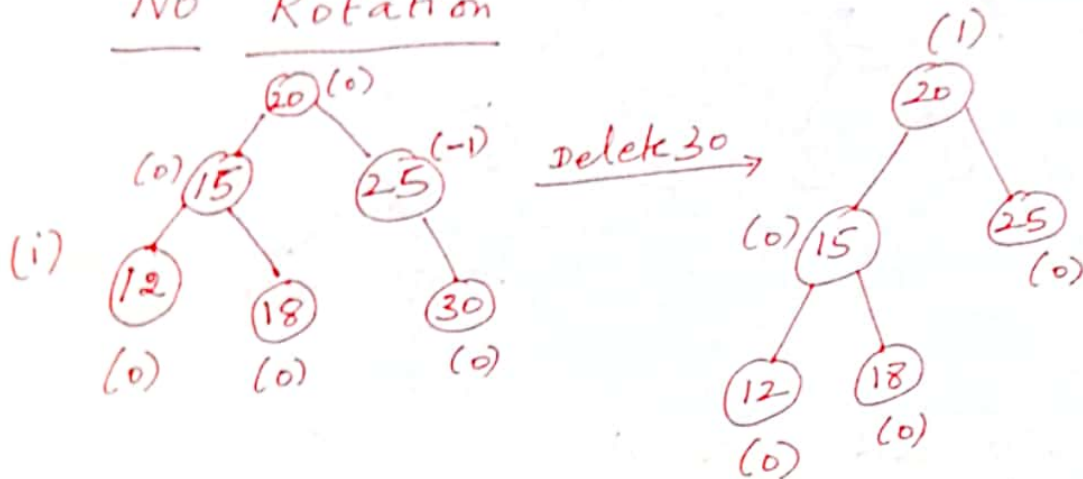 No Rotation
(i)
20 (0)
(0) 15
25 (-1)
12
(0)
18
(0)
30
(0)
Delete 30
(1)
20
(0) 15
25
(0)
12
(0)
18
(0)